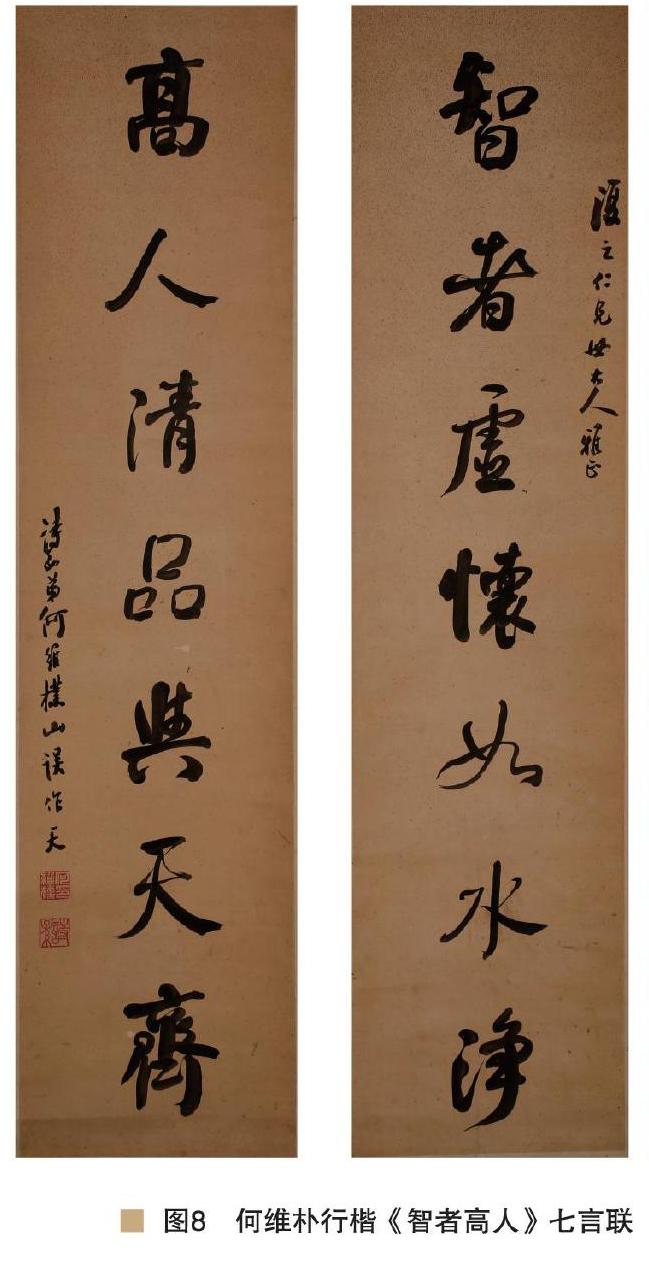 智者虛懷如水淨
之仁兄世大人雅正
高人清品與天齊
詩孫弟何維樸山誤作天
图8 何维朴行楷《智者高人》七言联